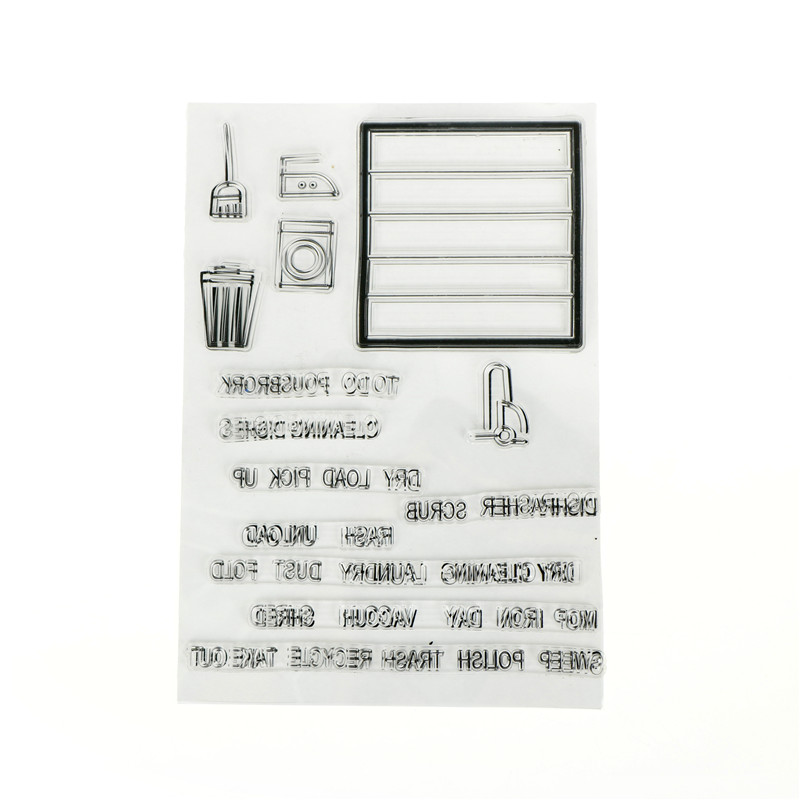 TO DO POUSBRORK
CLEANING DISHES
DRY LOAD PICK UP
DISHRASHER SCRUB
RASH UNLOAD
DRY CLEANING LAUNDRY DUST FOLD
MOP IRON DAY VACOUH SHRED
SWEEP POLISH TRASH RECYCLE TAKE OUT